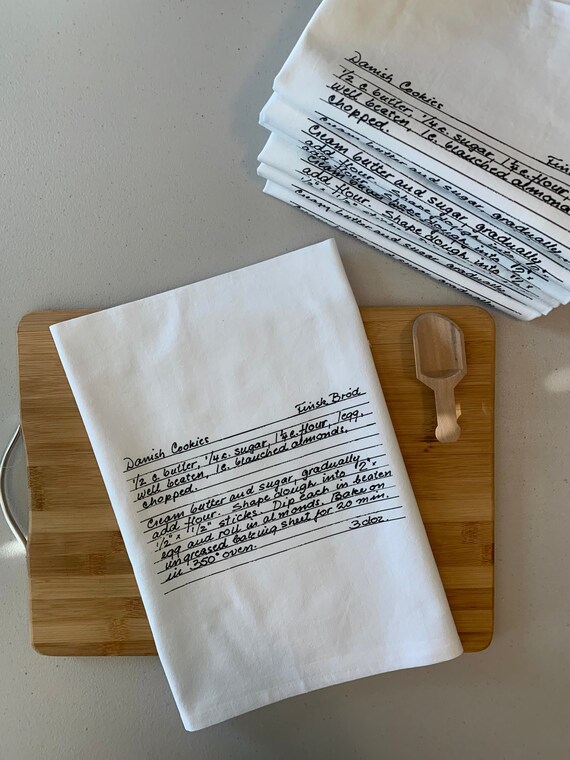 Danish Cookies
1/2 c. butter, 1/4 c. sugar, 1 1/2 c. flour,
well beaten, 1 c. blauched almonds
chopped.
Finsk
Cream butter and sugar, gradually
Cream butter and sugar, gradually
add flour. Shape dough
add flour. Shape dough into 1/2" x
Cream butter and sugar, gradually
Danish Cookies Finsk Bröd
1/2 c. butter, 1/4 c. sugar, 1 1/2 c. flour, 1 egg,
well beaten, 1 c. blauched almonds,
chopped.
Cream butter and sugar, gradually
add flour. Shape dough into 1/2" x
1/2" x 1 1/2" sticks. Dip each in beaten
egg and roll in almonds. Bake on
ungreased baking sheet for 20 min.
in 350° oven. 3 doz.